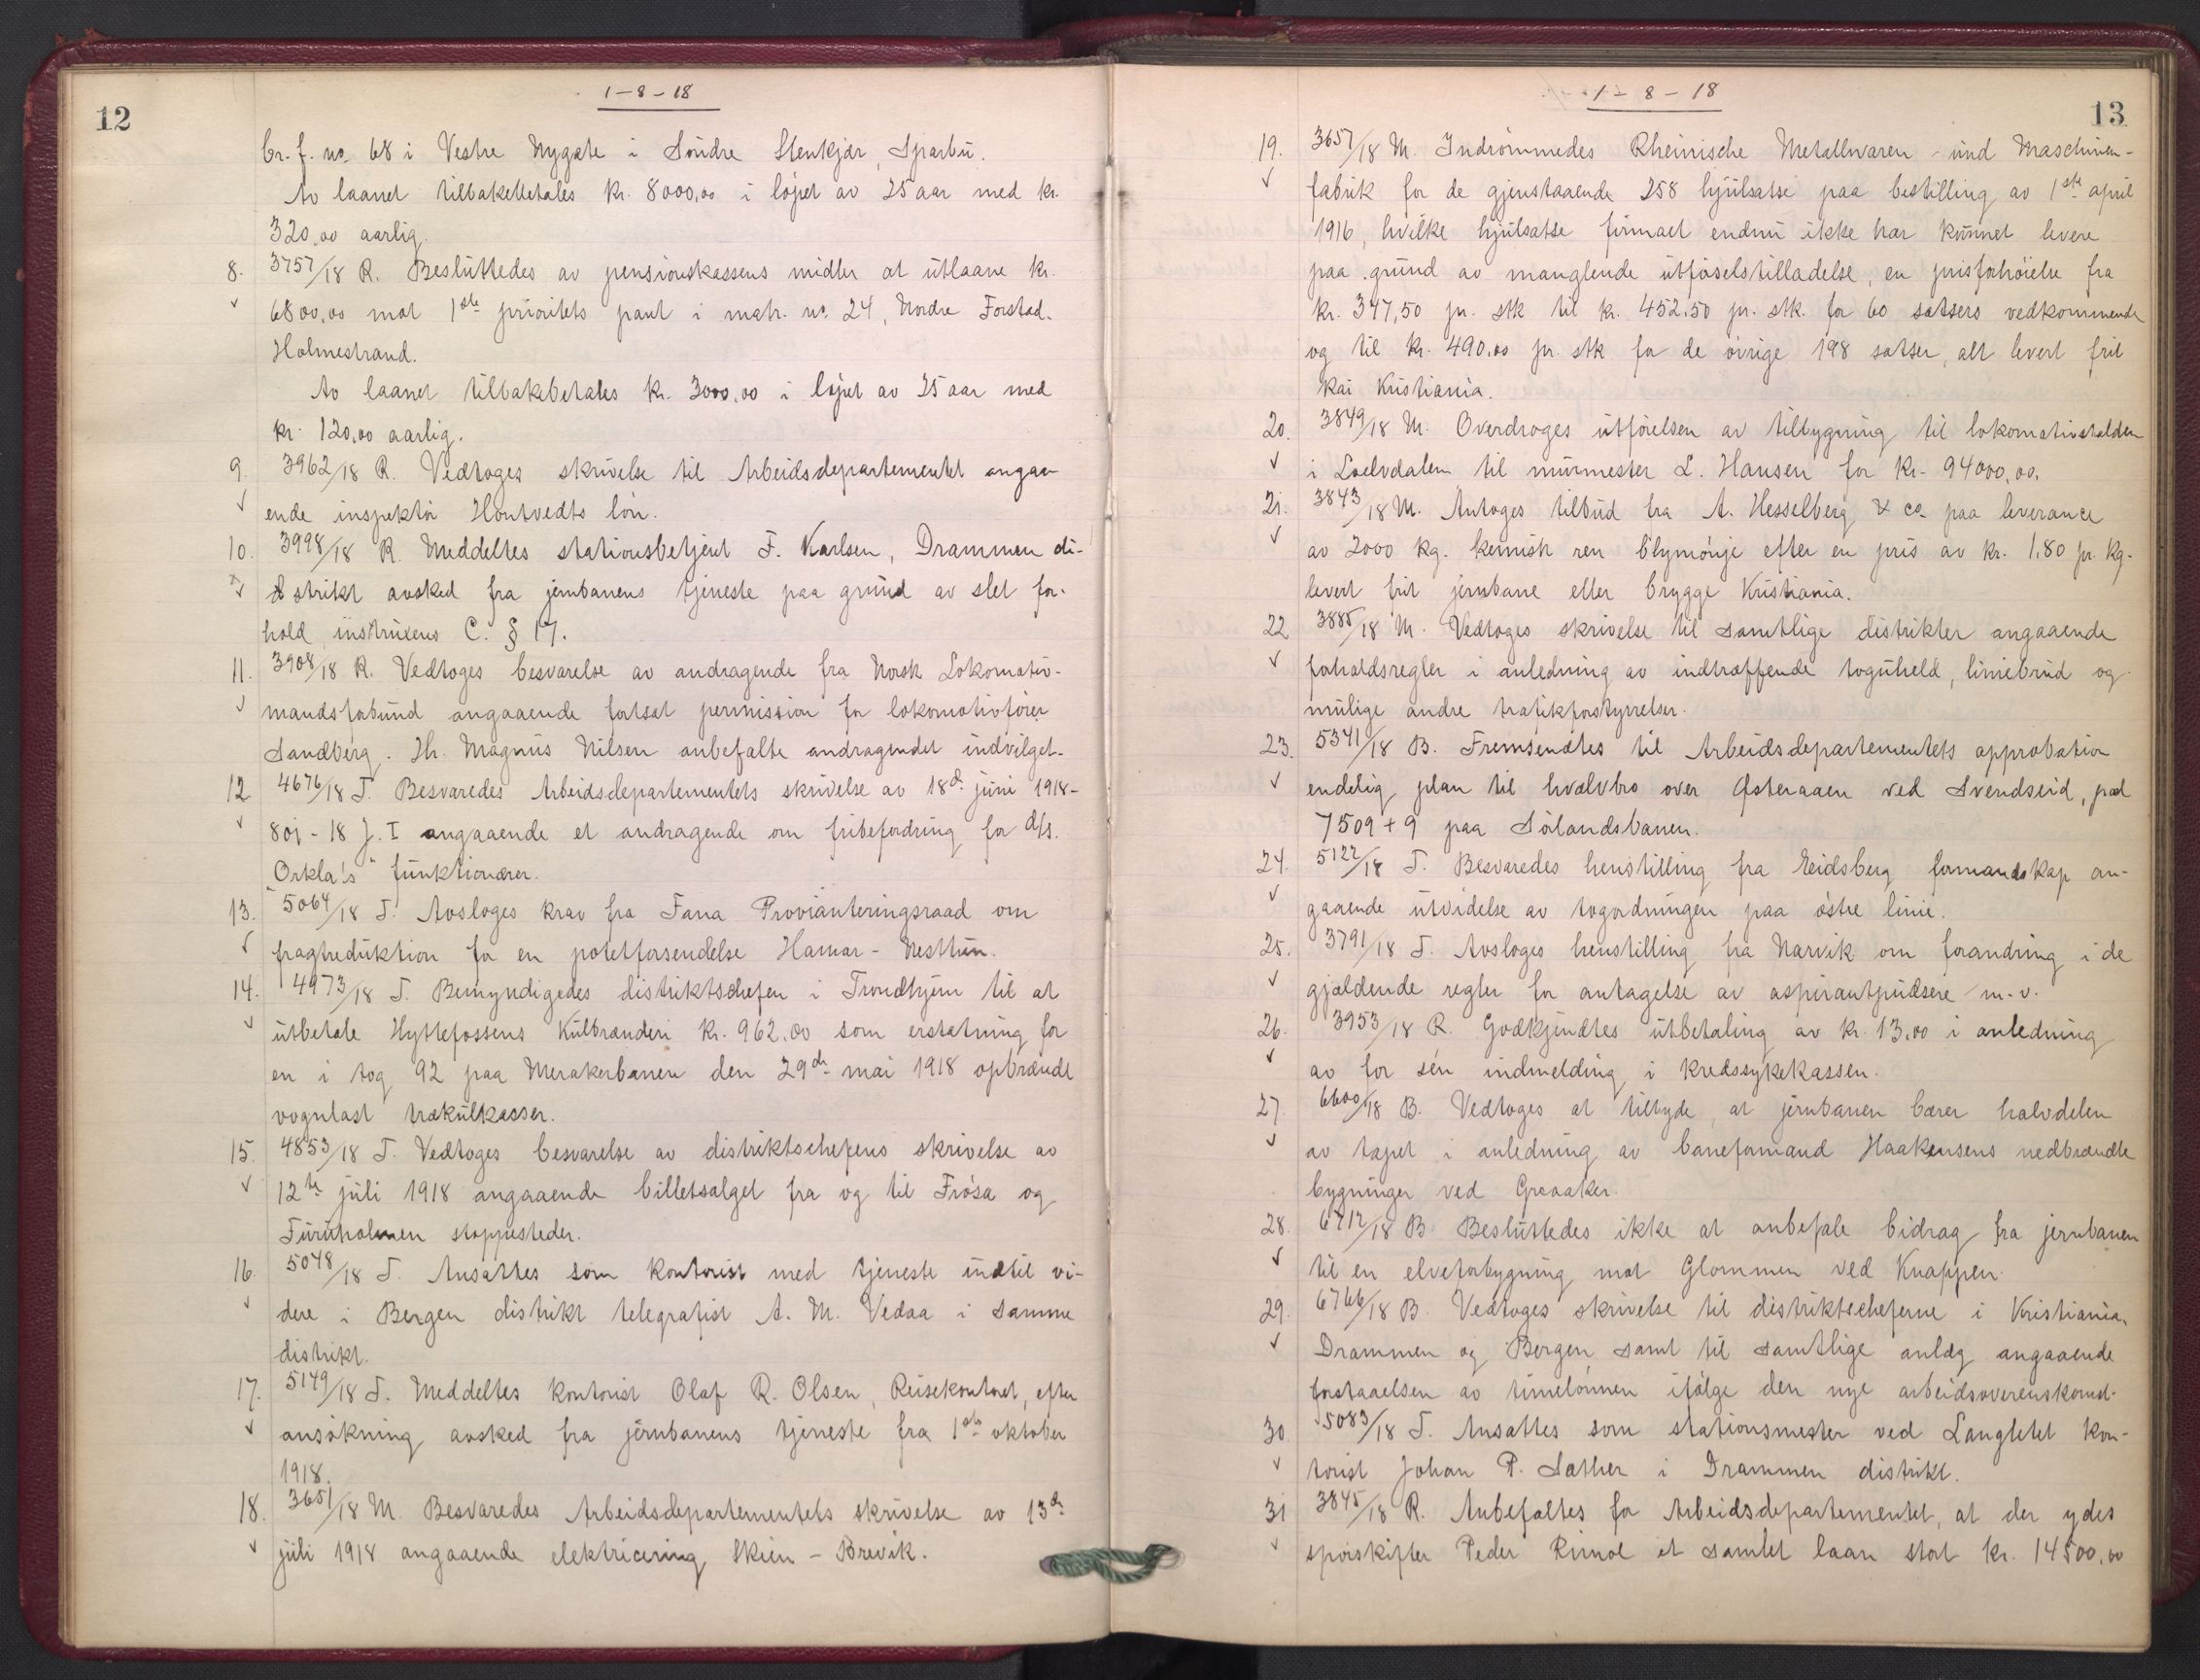 12
1-8-18
br. f. no. 68 i Vestre Nygate i Söndre Stenkjær, Sparbu.
Av laanet tilbakebetales kr. 8000,00 i löpet av 25 aar med kr.
320,00 aarlig.
8. 3757/18 R. Besluttedes av pensionskassens midler at utlaane kr.
6800,00 mot 1ste prioritets pant i matr. no. 24, Nordre Forstad.
Holmestrand.
Av laanet tilbakebetales kr. 3000,00 i löpet av 25 aar med
kr. 120,00 aarlig.
9. 3962/18 R. Vedtoges skrivelse til Arbeidsdepartementet angaa-
ende inspektör Hontvedts lön.
10. 3998/18 R. Meddeltes stationsbetjent F. Karlsen, Drammen di-
strikt avsked fra jernbanens tjeneste paa grund av slet for-
hold instruxens C. § 17.
11. 3908/18 R. Vedtoges besvarelse av andragende fra Norsk Lokomotiv-
mandsforbund angaaende fortsat permission for lokomotivförer
Sandberg. Hr. Magnus Nilsen anbefalte andragendet indvilget.
12 4676/18 T. Besvaredes Arbeidsdepartementets skrivelse av 18de juni 1918-
801-18 J. I angaaende et andragende om fribefordring for d/s.
"Orkla's" funktionærer.
13. 5064/18 T. Avsloges krav fra Fana Provianteringsraad om
fragtreduktion for en potetforsendelse Hamar - Nesttun.
14. 4973/18 T. Bemyndigedes distriktschefen i Trondhjem til at
utbetale Hyttefossens Kulbrænderi kr. 962,00 som erstatning for
en i tog 92 paa Merakerbanen den 29de mai 1918 opbrændt
vognlast trækulkasser.
15. 4853/18 T. Vedtoges besvarelse av distriktschefens skrivelse av
12te juli 1918 angaaende billetsalget fra og til Frösa og
Furuholmen stoppesteder.
16. 5048/18 T. Ansattes som kontorist med tjeneste indtil vi-
dere i Bergen distrikt telegrafist A. M. Vedaa i samme
distrikt.
17. 5149/18 T. Meddeltes kontorist Olaf R. Olsen, Reisekontoret, efter
ansökning avsked fra jernbanens tjeneste fra 1ste oktober
1918.
18. 3651/18 M. Besvaredes Arbeidsdepartementets skrivelse av 13de
juli 1918 angaaende elektricering Skien - Brevik.
13
1-8-18
19. 3657/18 M. Indrömmedes Rheinische Metallwaren- und Maschinen-
fabrik for de gjenstaaende 258 hjulsatse paa bestilling av 1ste april
1916, hvilke hjulsatse firmaet endnu ikke har kunnet levere
paa grund av manglende utförselstilladelse, en prisforhöielse fra
kr. 347,50 pr. stk til kr. 452,50 pr. stk. for 60 satsers vedkommende
og til kr. 490,00 pr. stk for de övrige 198 satser, alt levert frit
kai Kristiania.
20. 3849/18 M. Overdroges utförelsen av tilbygning til lokomotivstalden
i Loelvdalen til murmester L. Hansen for kr. 94000,00.
21. 3843/18 M. Antoges tilbud fra A. Hesselberg & co. paa leverance
av 2000 kg. kemisk ren blymönje efter en pris av kr. 1.80 pr. kg.
levert frit jernbane eller brygge Kristiania.
22 3885/18 M. Vedtoges skrivelse til samtlige distrikter angaaende
forholdsregler i anledning av indtræffende toguheld, liniebrud og
mulige andre trafikforstyrrelser.
23. 5341/18 B. Fremsendtes til Arbeidsdepartementets approbation
endelig plan til hvælvbro over Østeraaen ved Svendseid, pæl
7509 + 9 paa Sörlandsbanen.
24. 5122/18 T. Besvaredes henstilling fra Eidsberg formandskap an-
gaaende utvidelse av togordningen paa östre linie.
25. 3791/18 T. Avsloges henstilling fra Narvik om forandring i de
gjældende regler for antagelse av aspirantpudsere m.v.
26. 3953/18 R. Godkjendtes utbetaling av kr. 13,00 i anledning
av for sen indmelding i kredssykekassen.
27. 6600/18 B. Vedtoges at tilbyde, at jernbanen bærer halvdelen
av tapet i anledning av baneformand Haakensens nedbrændte
bygninger ved Greaaker.
28. 6712/18 B. Besluttedes ikke at anbefale bidrag fra jernbanen
til en elveforbygning mot Glommen ved Knappen.
29. 6766/18 B. Vedtoges skrivelse til distriktscheferne i Kristiania,
Drammen og Bergen samt til samtlige anlæg angaaende
forstaaelsen av timelönnen ifölge den nye arbeidsoverenskomst.
30 5083/18 T. Ansattes som stationsmester ved Langletet kon-
torist Johan P. Sæther i Drammen distrikt.
31 3845/18 R. Anbefaltes for Arbeidsdepartementet, at der ydes
sporskifter Peder Rimol et samlet laan stort kr. 14500,00